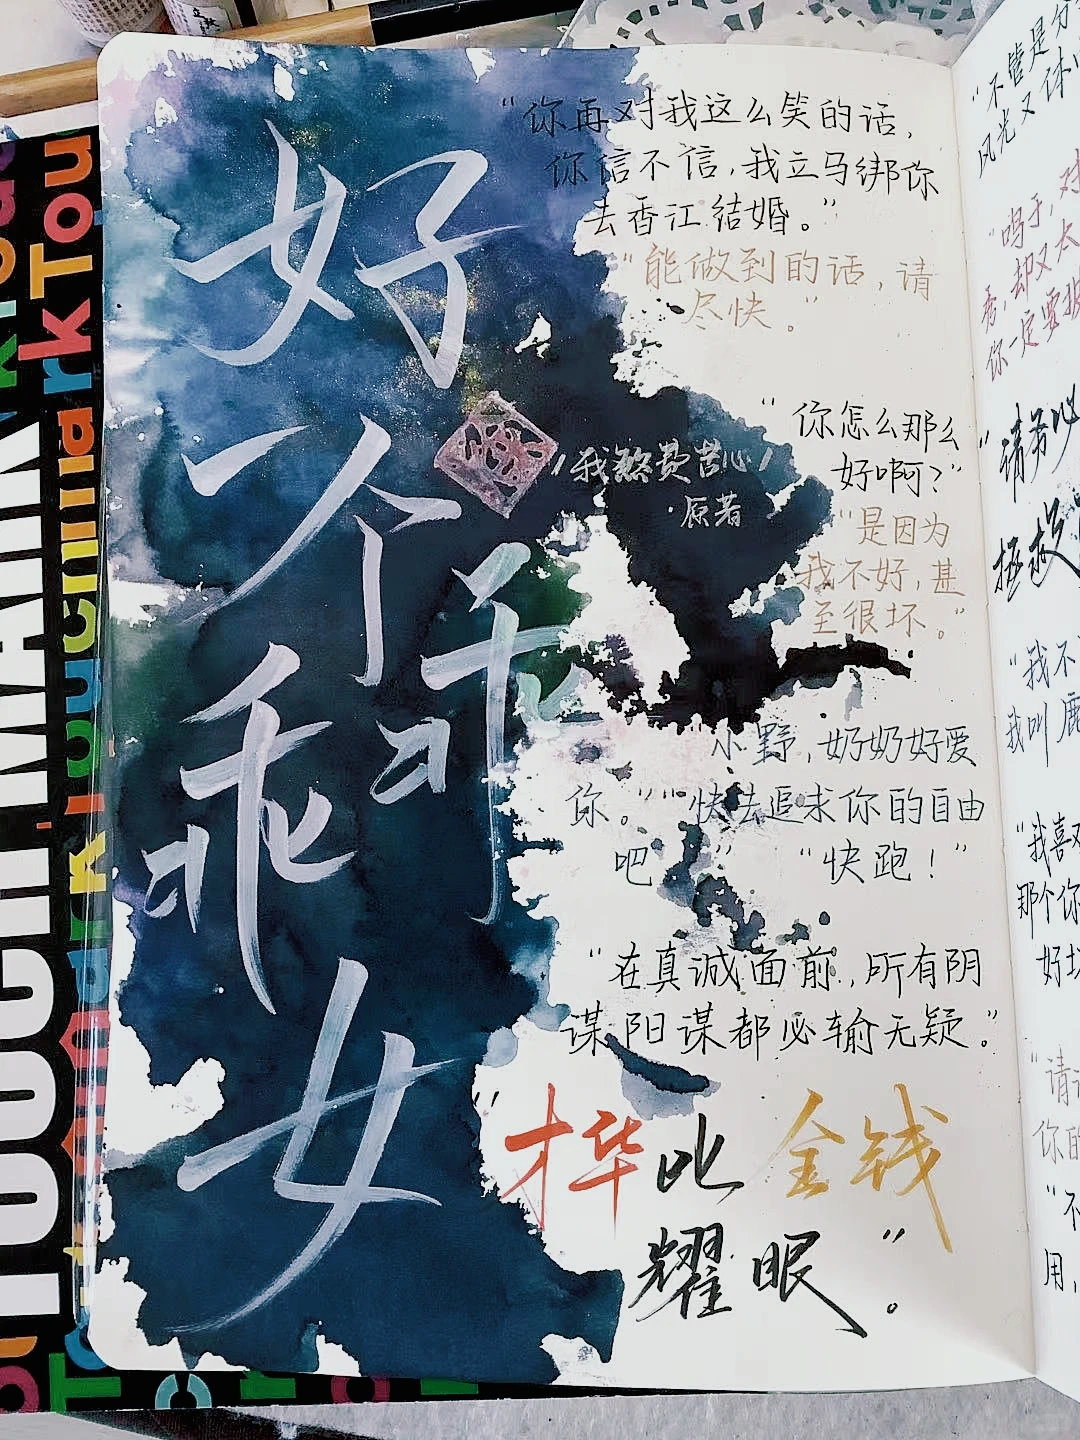 好
一个
乖
乖
女
/我煞费苦心/
·原著
"你再对我这么笑的话，
你信不信，我立马绑你
去香江结婚。"
"能做到的话，请
尽快。"
"你怎么那么
好啊？"
"是因为
我不好，甚
至很坏。"
"小野，奶奶好爱
你。""快去追求你的自由
吧！" "快跑！"
"在真诚面前，所有阴
谋阳谋都必输无疑。"
"才华比金钱
耀眼。"
"不管是分
风光又体
"鸣于，对
秀，却又太
你一定要
"请务必
拯救
"我不
我叫鹿
"我喜欢
那个你
好坏
"请
你的
"不
用，
TOUCH MARK